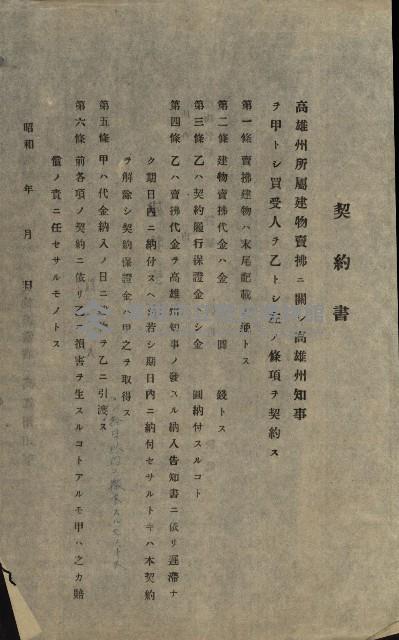 契約書
高雄州所屬建物賣拂ニ關シ高雄州知事
ヲ甲トシ買受人ヲ乙トシ左ノ條項ヲ契約ス
第一條 賣拂建物ハ末尾記載ノ通トス
第二條 建物賣拂代金ハ金 圓 錢トス
第三條 乙ハ契約履行保證金トシ金 圓納付スルコト
第四條 乙ハ賣拂代金ヲ高雄州知事ノ發スル納入告知書ニ依リ遲滯ナ
ク期日內ニ納付スヘシ若シ期日內ニ納付セサルトキハ本契約
ヲ解除シ契約保證金ハ甲之ヲ取得ス
第五條 甲ハ代金納入ノ日ニ物件ヲ乙ニ引渡ス
第六條 前各項ノ契約ニ依リ乙ニ損害ヲ生スルコトアルモ甲ハ之カ賠
償ノ責ニ任セサルモノトス
昭和 年 月 日